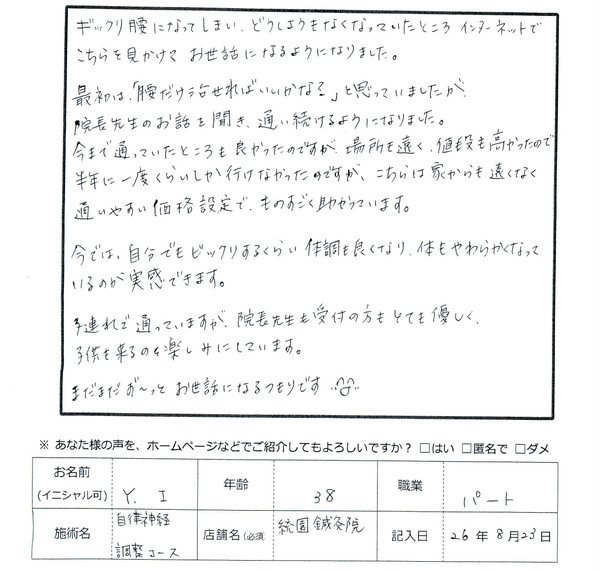 ギックリ腰になってしまい、どうしようもなくなっていたところ インターネットで
こちらを見かけて お世話になるようになりました。
最初は、「腰だけ治せればいいかな?」と思っていましたが、
院長先生のお話を聞き、通い続けるようになりました。
今まで通っていたところも良かったのですが、場所も遠く、値段も高かったので
半年に一度くらいしか行けなかったのですが、こちらは家からも遠くなく
通いやすい価格設定で、ものすごく助かっています。
今では、自分でもビックリするくらい 体調も良くなり、体もやわらかくなって
いるのが実感できます。
子連れで通っていますが、院長先生も受付の方もとても優しく、
子供も来るのを楽しみにしています。
まだまだ ず〜っと お世話になるつもりです
※ あなた様の声を、ホームページなどでご紹介してもよろしいですか? □はい □匿名で □ダメ
お名前 (イニシャル可) Y. I 年齢 38 職業 パート
施術名 自律神経 調整コース 店舗名(必須 統園鍼灸院 記入日 26 年 8 月 23 日